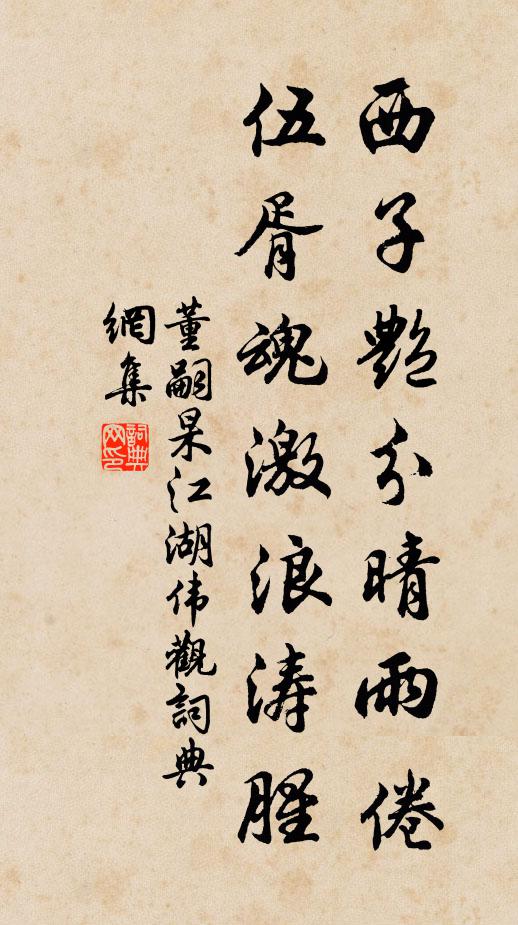 西子艷分晴雨倦
伍胥魂激浪濤腥
董嗣杲江湖伟觀詞典
網集
詞典網印